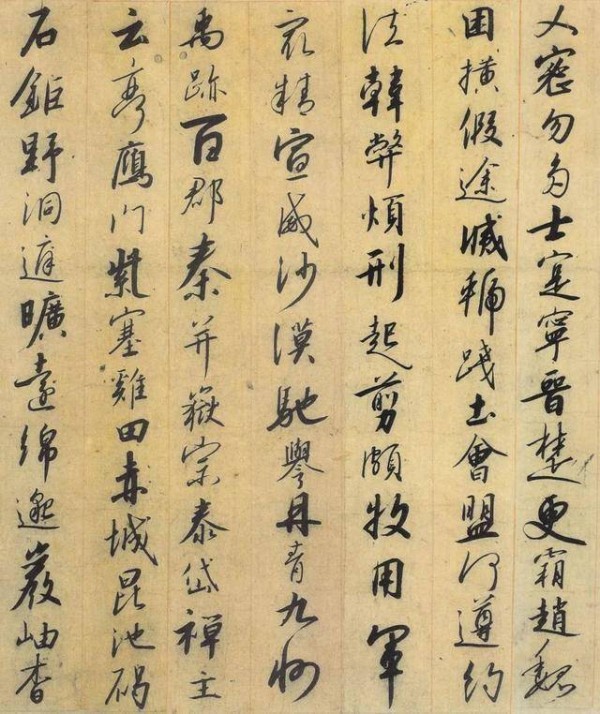 乂密勿多士寔寧晉楚更霸趙魏
困橫假途滅虢踐土會盟何遵約
法韓弊煩刑起翦頗牧用軍
最精宣威沙漠馳譽丹青九州
禹跡百郡秦并嶽宗泰岱禪主
云亭鴈門紫塞雞田赤城昆池碣
石鉅野洞庭曠遠綿邈巖岫杳